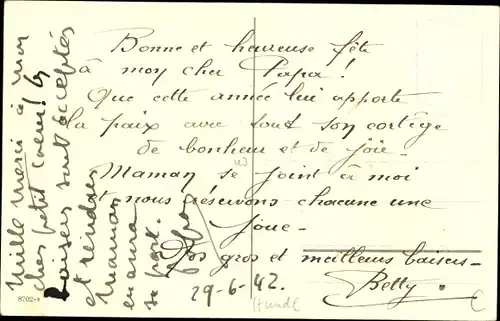 Bonne et heureuse fête
à mon cher Papa!
Que cette année lui apporte
la paix avec tout son cortège
de bonheur et de joie.
Maman se joint à moi
et nous réservons chacune une
joue.
Dos gros et meilleurs baisers
Betty.
29-6-42.
Mille merci à mon
cher petit coeur! les
baisers sont acceptés
et rendus
Maman
en aura
sa part.
8702-2